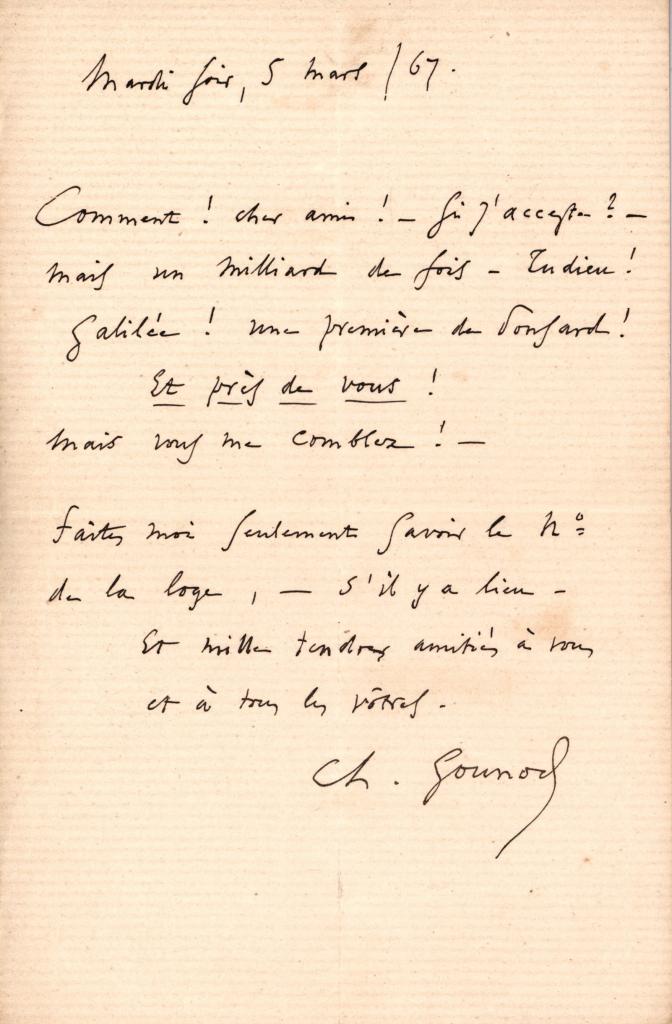 Mardi soir, 5 mars /67.
Comment ! cher ami ! — si j'accepte ? —
mais un milliard de fois — Tudieu !
Galilée ! une première de Ponsard !
Et près de vous !
Mais vous me comblez ! —
Faites moi seulement savoir le No
de la loge, — s'il y a lieu —
Et mille tendres amitiés à vous
et à tous les vôtres.
Ch. Gounod